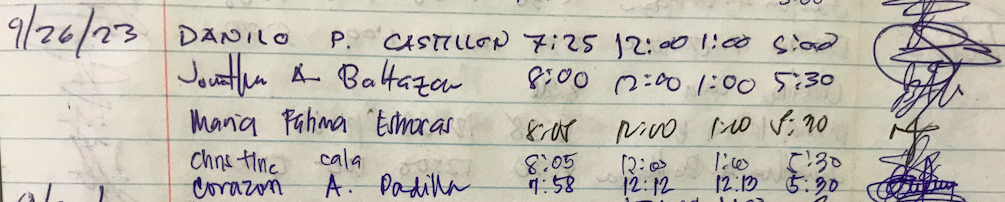 9/26/23 DANILO P. CASTILLON 7:25 12:00 1:00 5:00
Jonathan A Baltazar 8:00 12:00 1:00 5:30
Maria Fatima 8:05 12:00 1:00 5:30
Christine cala 8:05 12:00 1:00 5:30
Corazon A. Padilla 7:58 12:12 12:13 5:30